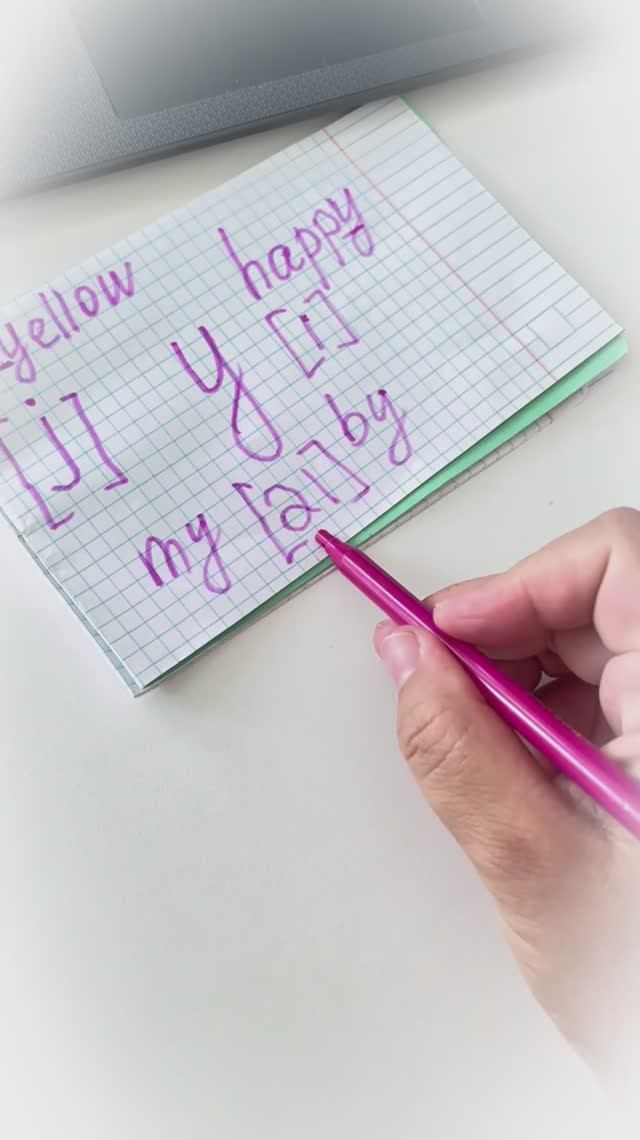 yellow happy
[j] y [i]
my [ai] by